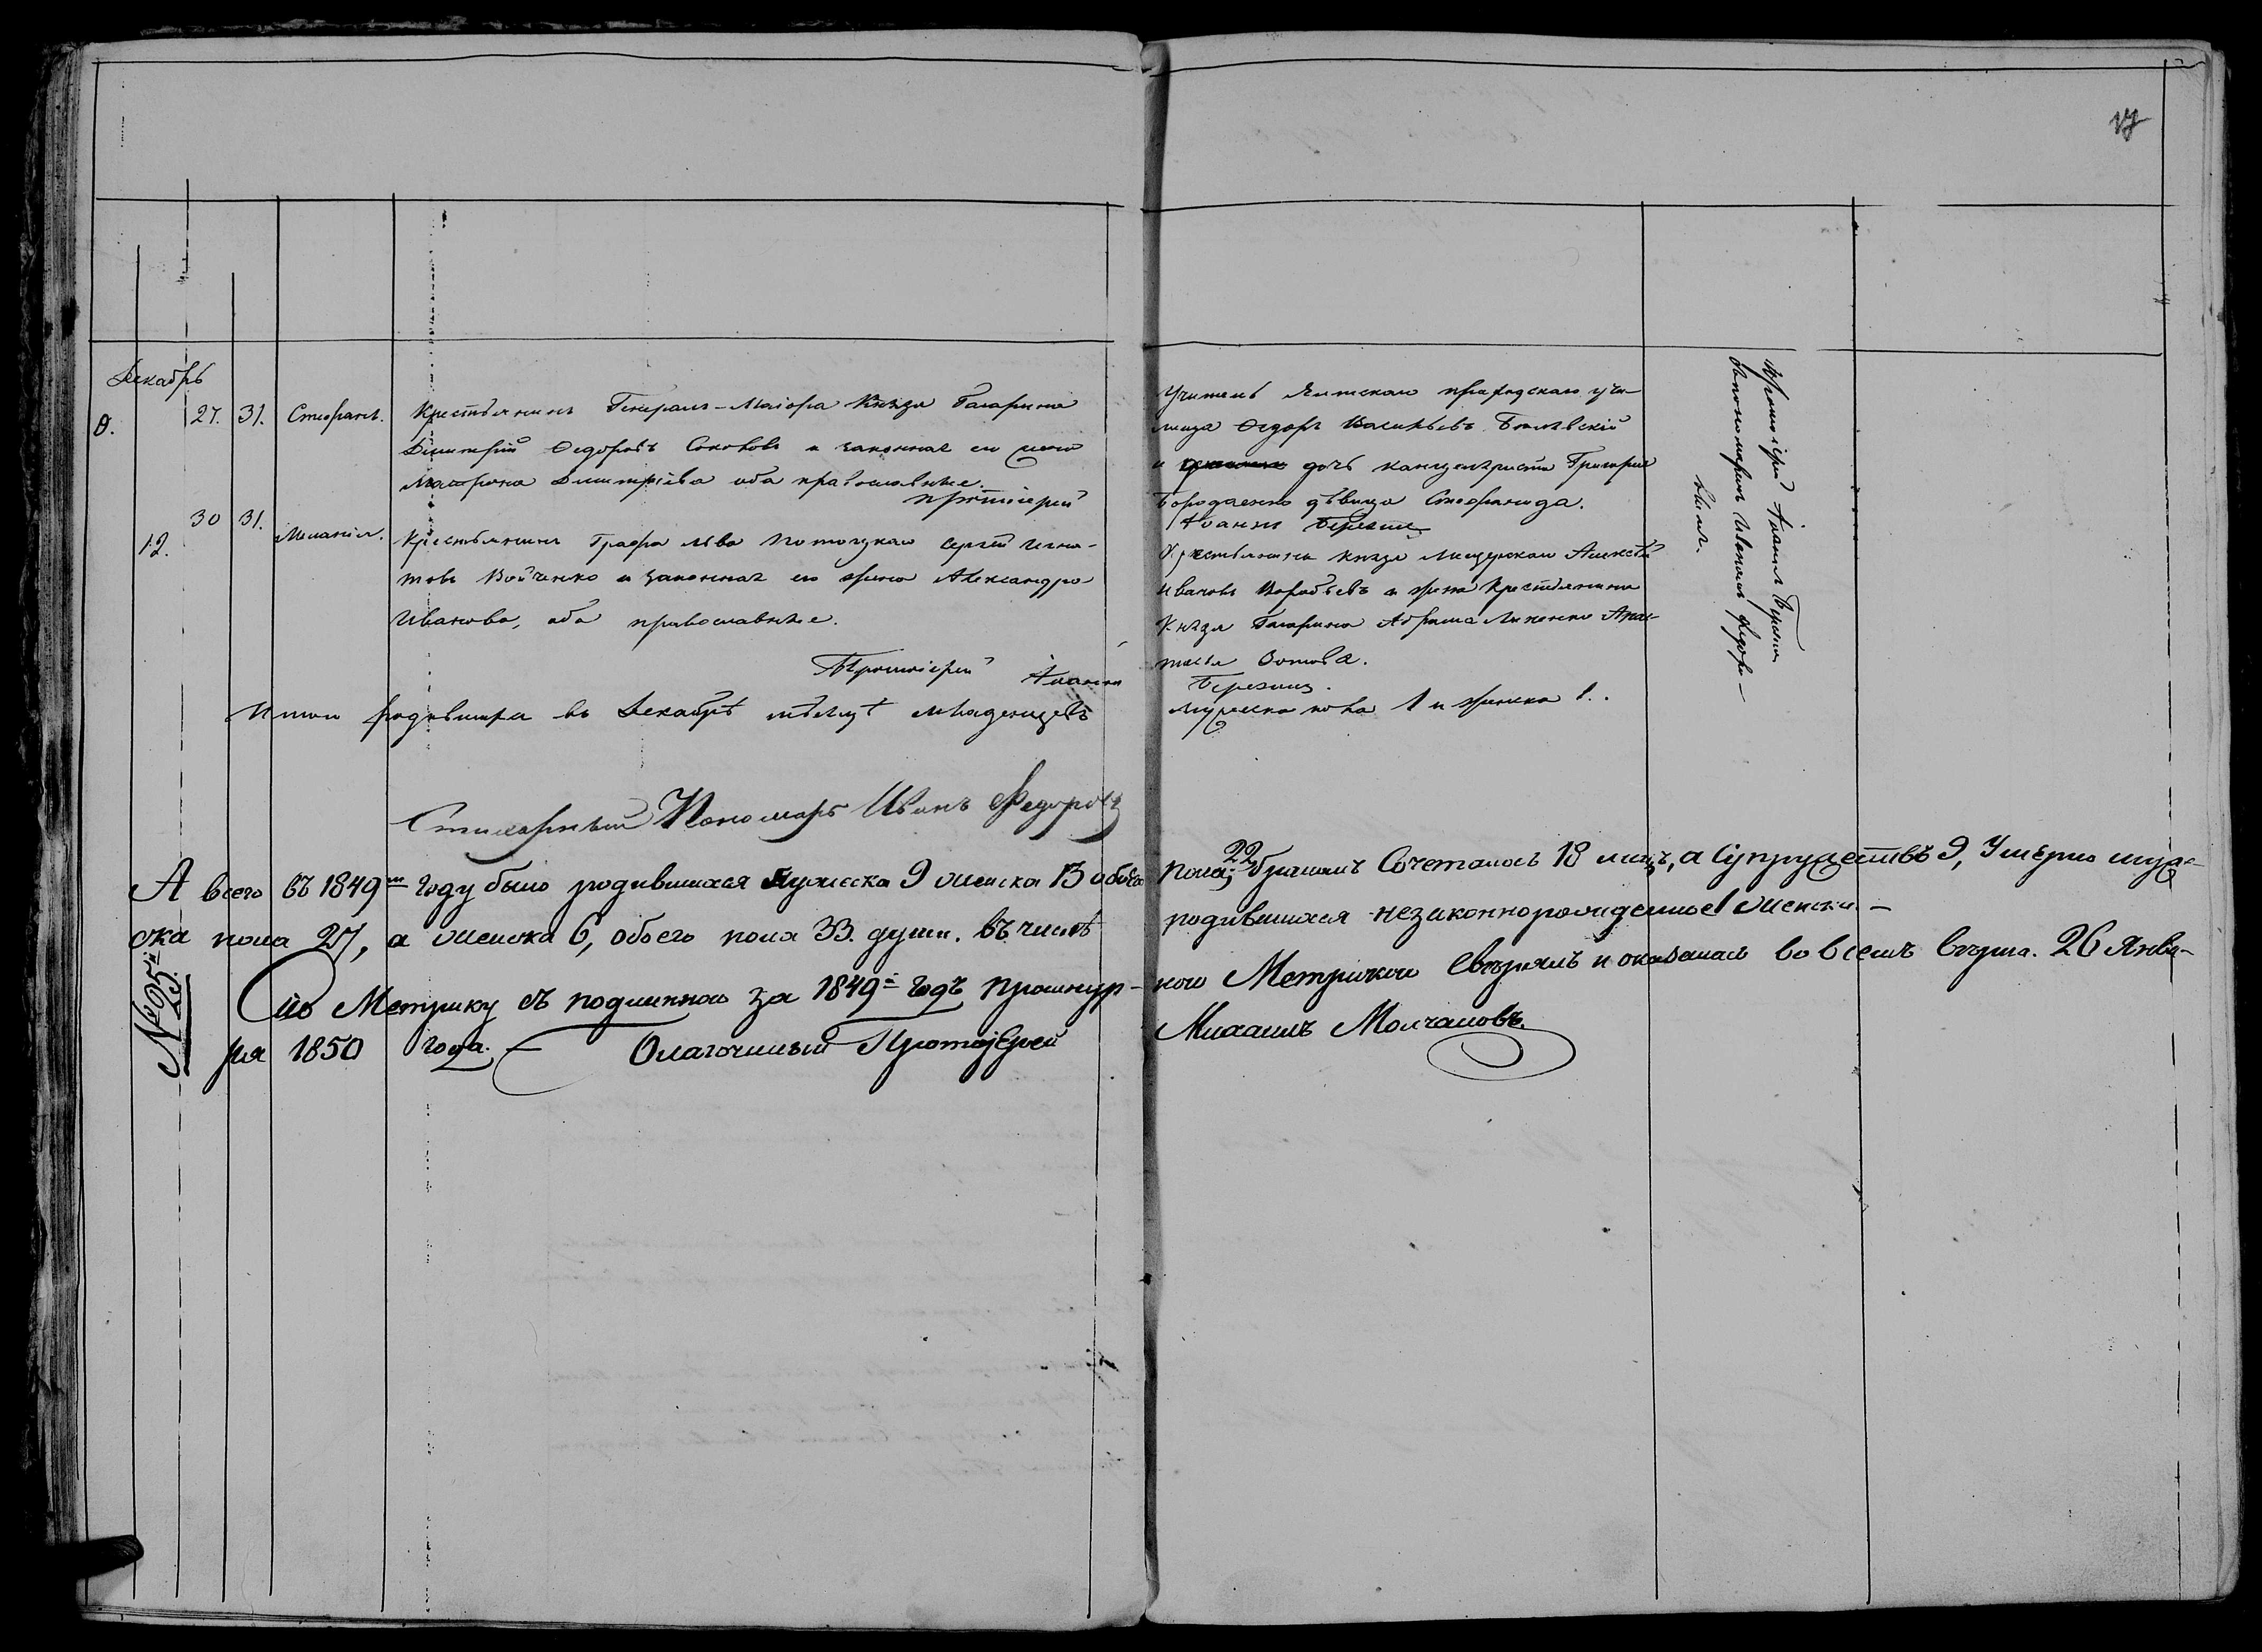 17
Декабрь
9. 27. 31. Стефанъ. Крестьянинъ Генералъ-Маіора Князя Гагарина
Димитрій Ѳедоровъ Соколовъ и законная его жена
Матрона Димитріева оба православные.
Протоіерей
12. 30 31. Меланія. Крестьянинъ Графа Льва Потоцкаго Сергій Игна-
товъ Войченко и законная его жена Александра
Иванова, оба православные.
Протоіерей Іоаннъ
Итого родившихъ въ Декабрѣ мѣсяцѣ младенцевъ
Учитель Ялтскаго приходскаго учи-
лища Ѳедоръ Васильевъ
и дочь канцеляриста Григорія
Бородаенко дѣвица Стефанида.
Іоаннъ Березинъ
Крестьянинъ князя Мещерскаго Алексѣй
Ивановъ Воробьевъ и жена Крестьянина
Князя Гагарина Абрама Анас-
тасія Зотова.
Березинъ.
Мужеска пола 1 и женска 1.
Протоіерей Іоаннъ Березинъ
съ пономаремъ Иваномъ Федоро-
вымъ.
Стихарный Пономарь Иванъ Федоровъ
А всего въ 1849м году было родившихся Мужеска 9 женска 13 обоего пола 22; бракомъ Сочеталось 18 лицъ, а Супружествъ 9, Умерло муже-
ска пола 27, а женска 6, обоего пола 33. души. въ числѣ родившихся незаконнорожденное 1 женска. —
№ 95й
Сію Метрику съ подлинною за 1849й годъ прошнур- ною Метрикою свѣрялъ и оказалась во всемъ вѣрна. 26 Янва-
ря 1850 года. — Благочинный Протоіерей Михаилъ Молчановъ.